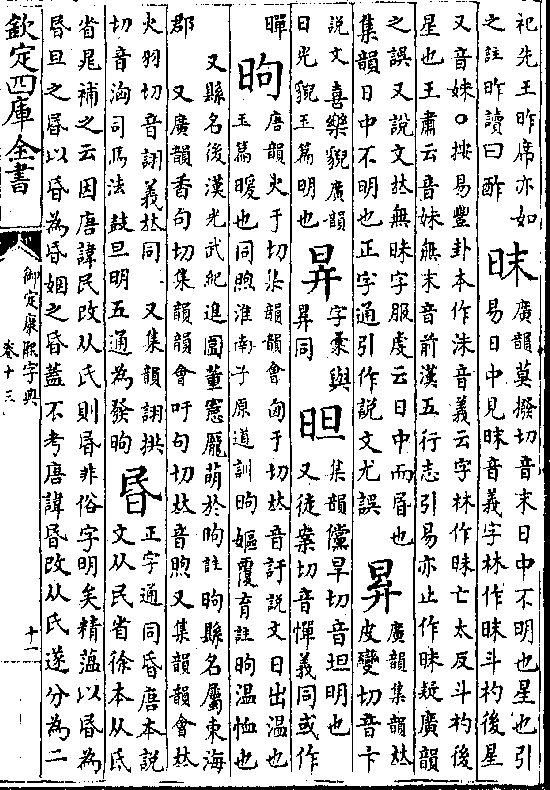 祀先王昨席亦如
之註昨讀曰酢
昩
廣韻莫撥切音末日中不明也星也引
易日中見昩音義字林作昩斗杓後星
又音妹○按易豐卦本作沬音義云字林作昩亡太反斗杓後
星也王肅云音妹無末音前漢五行志引易亦止作昩疑廣韻
之誤又說文𠀤無昩字服虔云日中而昬也
集韻日中不明也正字通引作說文尤誤
昪
廣韻集韻𠀤
皮變切音卞
說文喜樂貌廣韻
日光貌玉篇明也
昇
字彙與
昇同
㫜
集韻儻旱切音坦明也
又徒案切音憚義同或作
暺
昫
唐韻火于切集韻韻會匈于切𠀤音訏說文日出溫也
玉篇暖也同煦淮南子原道訓昫嫗覆育註昫溫恤也
又縣名後漢光武紀進圍董憲龐萌於昫註昫縣名屬東海
郡 又廣韻香句切集韻韻會吁句切𠀤音煦又集韻韻會𠀤
火羽切音詡義𠀤同 又集韻詡拱
切音洶司馬法鼓旦明五通為發昫
昬
正字通同昏唐本說
文从民省徐本从氐
省晁補之云因唐諱民改从氏則昬非俗字明矣精薀以昬為
昬旦之昬以昏為昏姻之昏蓋不考唐諱昬改从氏遂分為二
欽定四庫全書
御定康熙字典
卷十三
十一